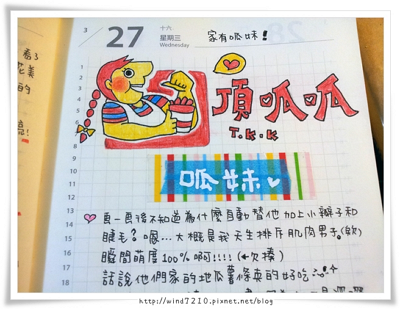 3
27
十六
星期三
Wednesday
家有呱妹!
頂呱呱
T.K.K
呱妹
頁一頁後不知道為什麼自動替他加上小辮子和
睫毛?嗯...大概是我天生排斥肌肉男子.(欸)
瞬間萌度100%啊!!!!(←欠揍)
話說他們家的地瓜薯條真的好吃
http://wind7210.pixnet.net/blog